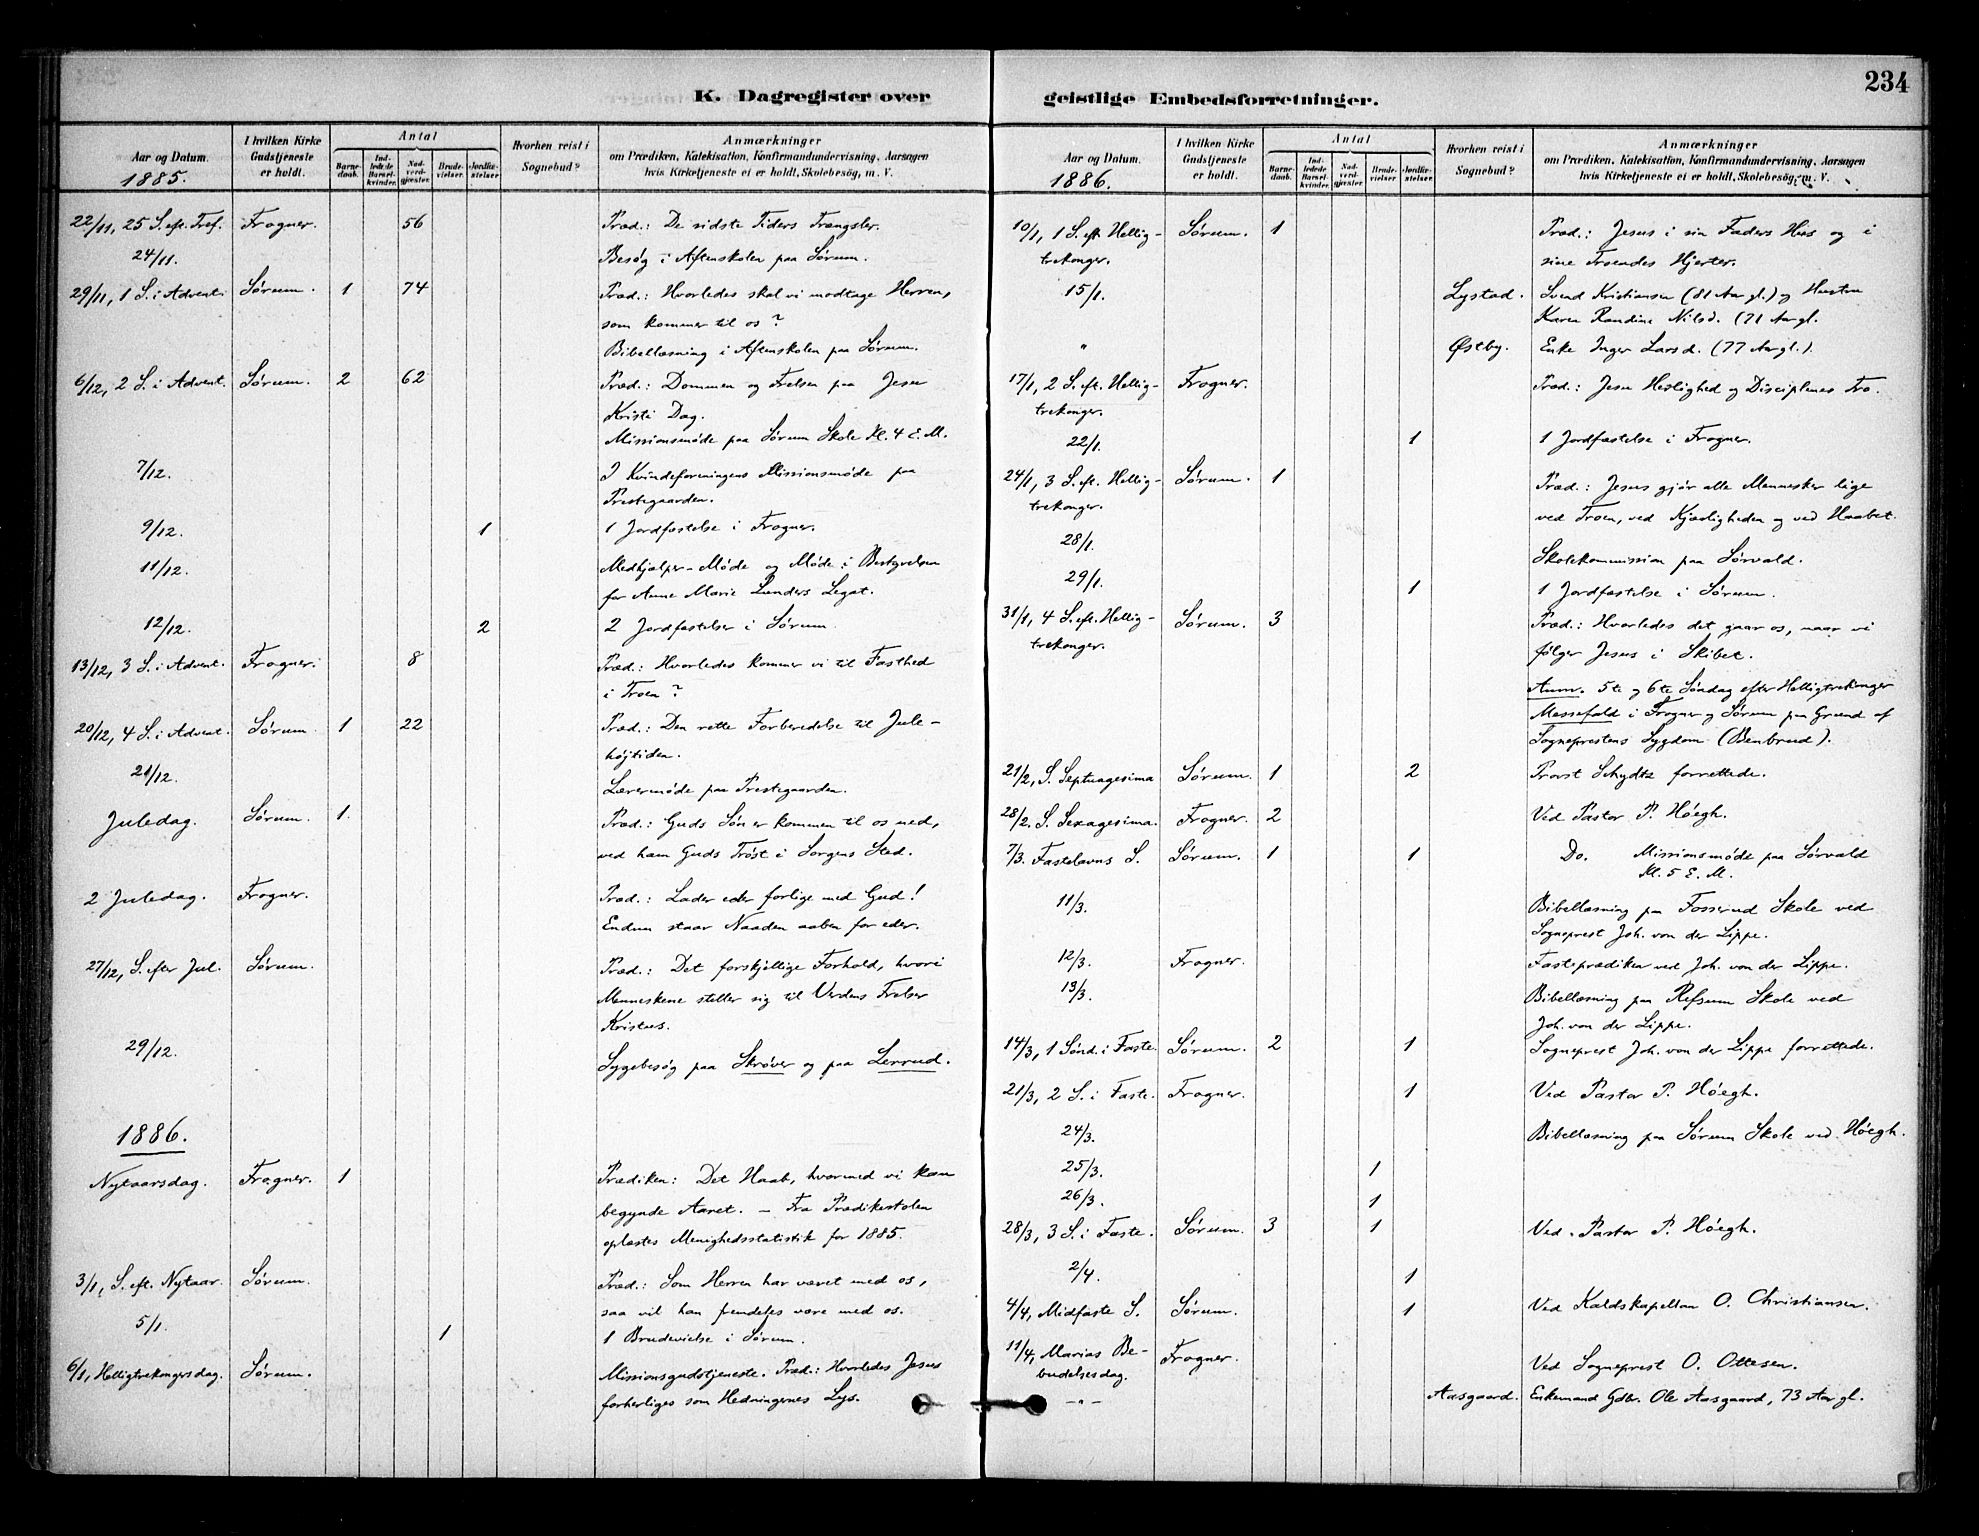 234
K. Dagregister over
Aar og Datum. 1885.
I hvilken Kirke Gudstjeneste er holdt.
Antal
Barnedaab.
Indledede Barselkvinder.
Nadverdgjester.
Brudevielser.
Jordfæstelser
Hvorhen reist i Sognebud?
Anmærkninger
om Prædiken, Katekisation, Konfirmandundervisning, Aarsagen
hvis Kirketjeneste ei er holdt, Skolebesøg, m. V.
22/11, 25 S. eft. Tref. Frogner. 56 Præd.: De sidste Tiders Trængsler.
24/11. Besøg i Aftenskolen paa Sørum.
29/11, 1 S. i Advent. Sørum. 1 74 Præd.: Hvorledes skal vi modtage Herren,
som kommer til os?
Bibellæsning i Aftenskolen paa Sørum.
6/12, 2 S. i Advent. Sørum. 2 62 Præd.: Dommen og Frelsen paa Jesu
Kristi Dag.
Missionsmøde paa Sørum Skole Kl. 4 E. M.
7/12. I Kvindeforeningens Missionsmøde paa
Prestegaarden.
9/12. 1 1 Jordfæstelse i Frogner.
11/12. Medhjælper-Møde og Møde i Bestyrelsen
for Anne Marie Lunders Legat.
12/12. 2 2 Jordfæstelser i Sørum.
13/12, 3 S. i Advent. Frogner. 8 Præd.: Hvorledes kommer vi til Fasthed
i Troen?
20/12, 4 S. i Advent. Sørum. 1 22 Præd.: Den rette Forberedelse til Jule-
højtiden.
21/12. Lærermøde paa Prestegaarden.
Juledag. Sørum. 1. Præd.: Guds Søn er kommen til os ned,
ved ham Guds Trøst i Sorgens Sted.
2 Juledag. Frogner. Præd.: Lader eder forlige med Gud!
Endnu staar Naaden aaben for eder.
27/12, S. efter Jul. Sørum. Præd.: Det forskjellige Forhold, hvori
Menneskene stiller sig til Verdens Frelser
Kristus.
29/12. Sygebesøg paa Skrøver og paa Lerrud.
1886.
Nytaarsdag. Frogner. 1 Prædiken: Det Haab, hvormed vi kan
begynde Aaret. - Fra Prædikestolen
oplæstes Menighedsstatistik for 1885.
3/1, S. eft. Nytaar. Sørum. Præd.: Som Herren har været med os,
saa vil han fremdeles være med os.
5/1. 1 1 Brudevielse i Sørum.
6/1, Helligtrekongersdag. Sørum. Missionsgudstjeneste. Præd.: Hvorledes Jesus
forherliges som Hedningernes Lys.
geistlige Embedsforretninger.
Aar og Datum. 1886.
I hvilken Kirke Gudstjeneste er holdt.
Antal
Barnedaab.
Indledede Barselkvinder.
Nadverdgjester.
Brudevielser
Jordfæstelser.
Hvorhen reist i Sognebud?
Anmærkninger
om Prædiken, Katekisation, Konfirmandundervisning, Aarsagen
hvis Kirketjeneste ei er holdt, Skolebesøg, m. V.
10/1, 1 S. eft. Hellig- Sørum. 1 Præd.: Jesus i sin Faders Hus og i
trekonger. sine Troendes Hjerter.
15/1. Lystad. Svend Kristiansen (81 Aar gl.) og Hustru
Karen Randine Nilsd. (71 Aar gl.
" Østby. Enke Inger Larsd. (77 Aar gl.).
17/1, 2 S. eft. Hellig- Frogner. Præd.: Jesu Herlighed og Disciplenes Tro.
trekonger.
22/1. 1 1 Jordfæstelse i Frogner.
24/1, 3 S. eft. Hellig- Sørum. 1 Præd.: Jesus gjør alle Mennesker lige
trekonger. ved Troen, ved Kjærligheden og ved Haabet.
28/1. Skolekommission paa Sørvald.
29/1. 1 1 Jordfæstelse i Sørum.
31/1, 4 S. eft. Hellig- Sørum. 3 Præd.: Hvorledes det gaar os, naar vi
trekonger. følger Jesus i Skibet.
Anm. 5te og 6te Søndag efter Helligtrekonger
Messefald i Frogner og Sørum paa Grund af
Sogneprestens Sygdom (Benbrud).
21/2, S. Septuagesima Sørum. 1 2 Provst Schydtz forrettede.
28/2. S. Sexagesima. Frogner. 2 Ved Pastor P. Høegh.
7/3. Fastelavns S. Sørum. 1 1 Do. Missionsmøde paa Sørvald
Kl. 5 E. M.
11/3. Bibellæsning paa Fosserud Skole ved
Sogneprest Joh. von der Lippe.
12/3. Frogner. Fasteprædiken ved Joh. von der Lippe.
13/3. Bibellæsning paa Refsum Skole ved
Joh. von der Lippe.
14/3, 1 Sønd. i Faste. Sørum. 2 1 Sogneprest Joh. von der Lippe forrettede.
21/3, 2 S. i Faste. Frogner. 1 Ved Pastor P. Høegh.
24/3. Bibellæsning paa Sørum Skole ved Høegh.
25/3. 1
26/3. 1
28/3, 3 S. i Faste. Sørum. 3 1 Ved Pastor P. Høegh.
2/4. 1
4/4, Midfaste S. Sørum. 1 Ved Kaldskapellan O. Christiansen.
11/4, Marias Be- Frogner. Ved Sogneprest O. Ottesen.
budelsesdag.
-"- Aasgaard. Enkemand Gdbr. Ole Aasgaard, 73 Aar gl.